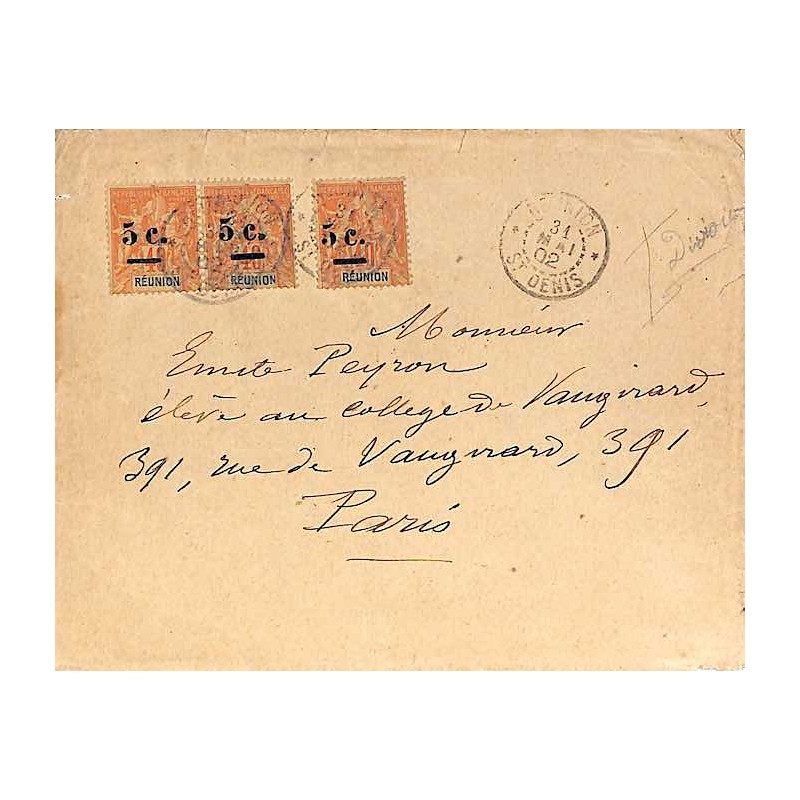 5 c. 5 c. 5 c.
40 40 40
RÉUNION RÉUNION RÉUNION
RÉUNION
31
MAI
02
ST DENIS
Monsieur
Emile Peyron
élève au collège de Vaugirard,
391, rue de Vaugirard, 391
Paris